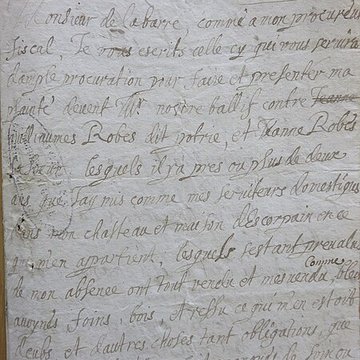 Monsieur de la barre, comme a mon procureur
fiscal, Je vous escrits celle cy qui vous servira
d'ample procuration pour faire et presenter ma
plainte devent Mr. nostre ballif contre Jeanne
Guilliaumes Robes dit potrie, et Janne Robes
lesquels il y a pres ou plus de deux
ans que J'ay mis comme mes serviteurs domestiques
dens mon chasteau et maison d'Escorpain en ce
qui m'en appartient, lesquels s'estant prevalu
de mon absence ont tout vendu et mesvendu, comme bled
avoynes foins, bois, et reffu ce qui m'en est out
et d'autres choses tant obligations, que